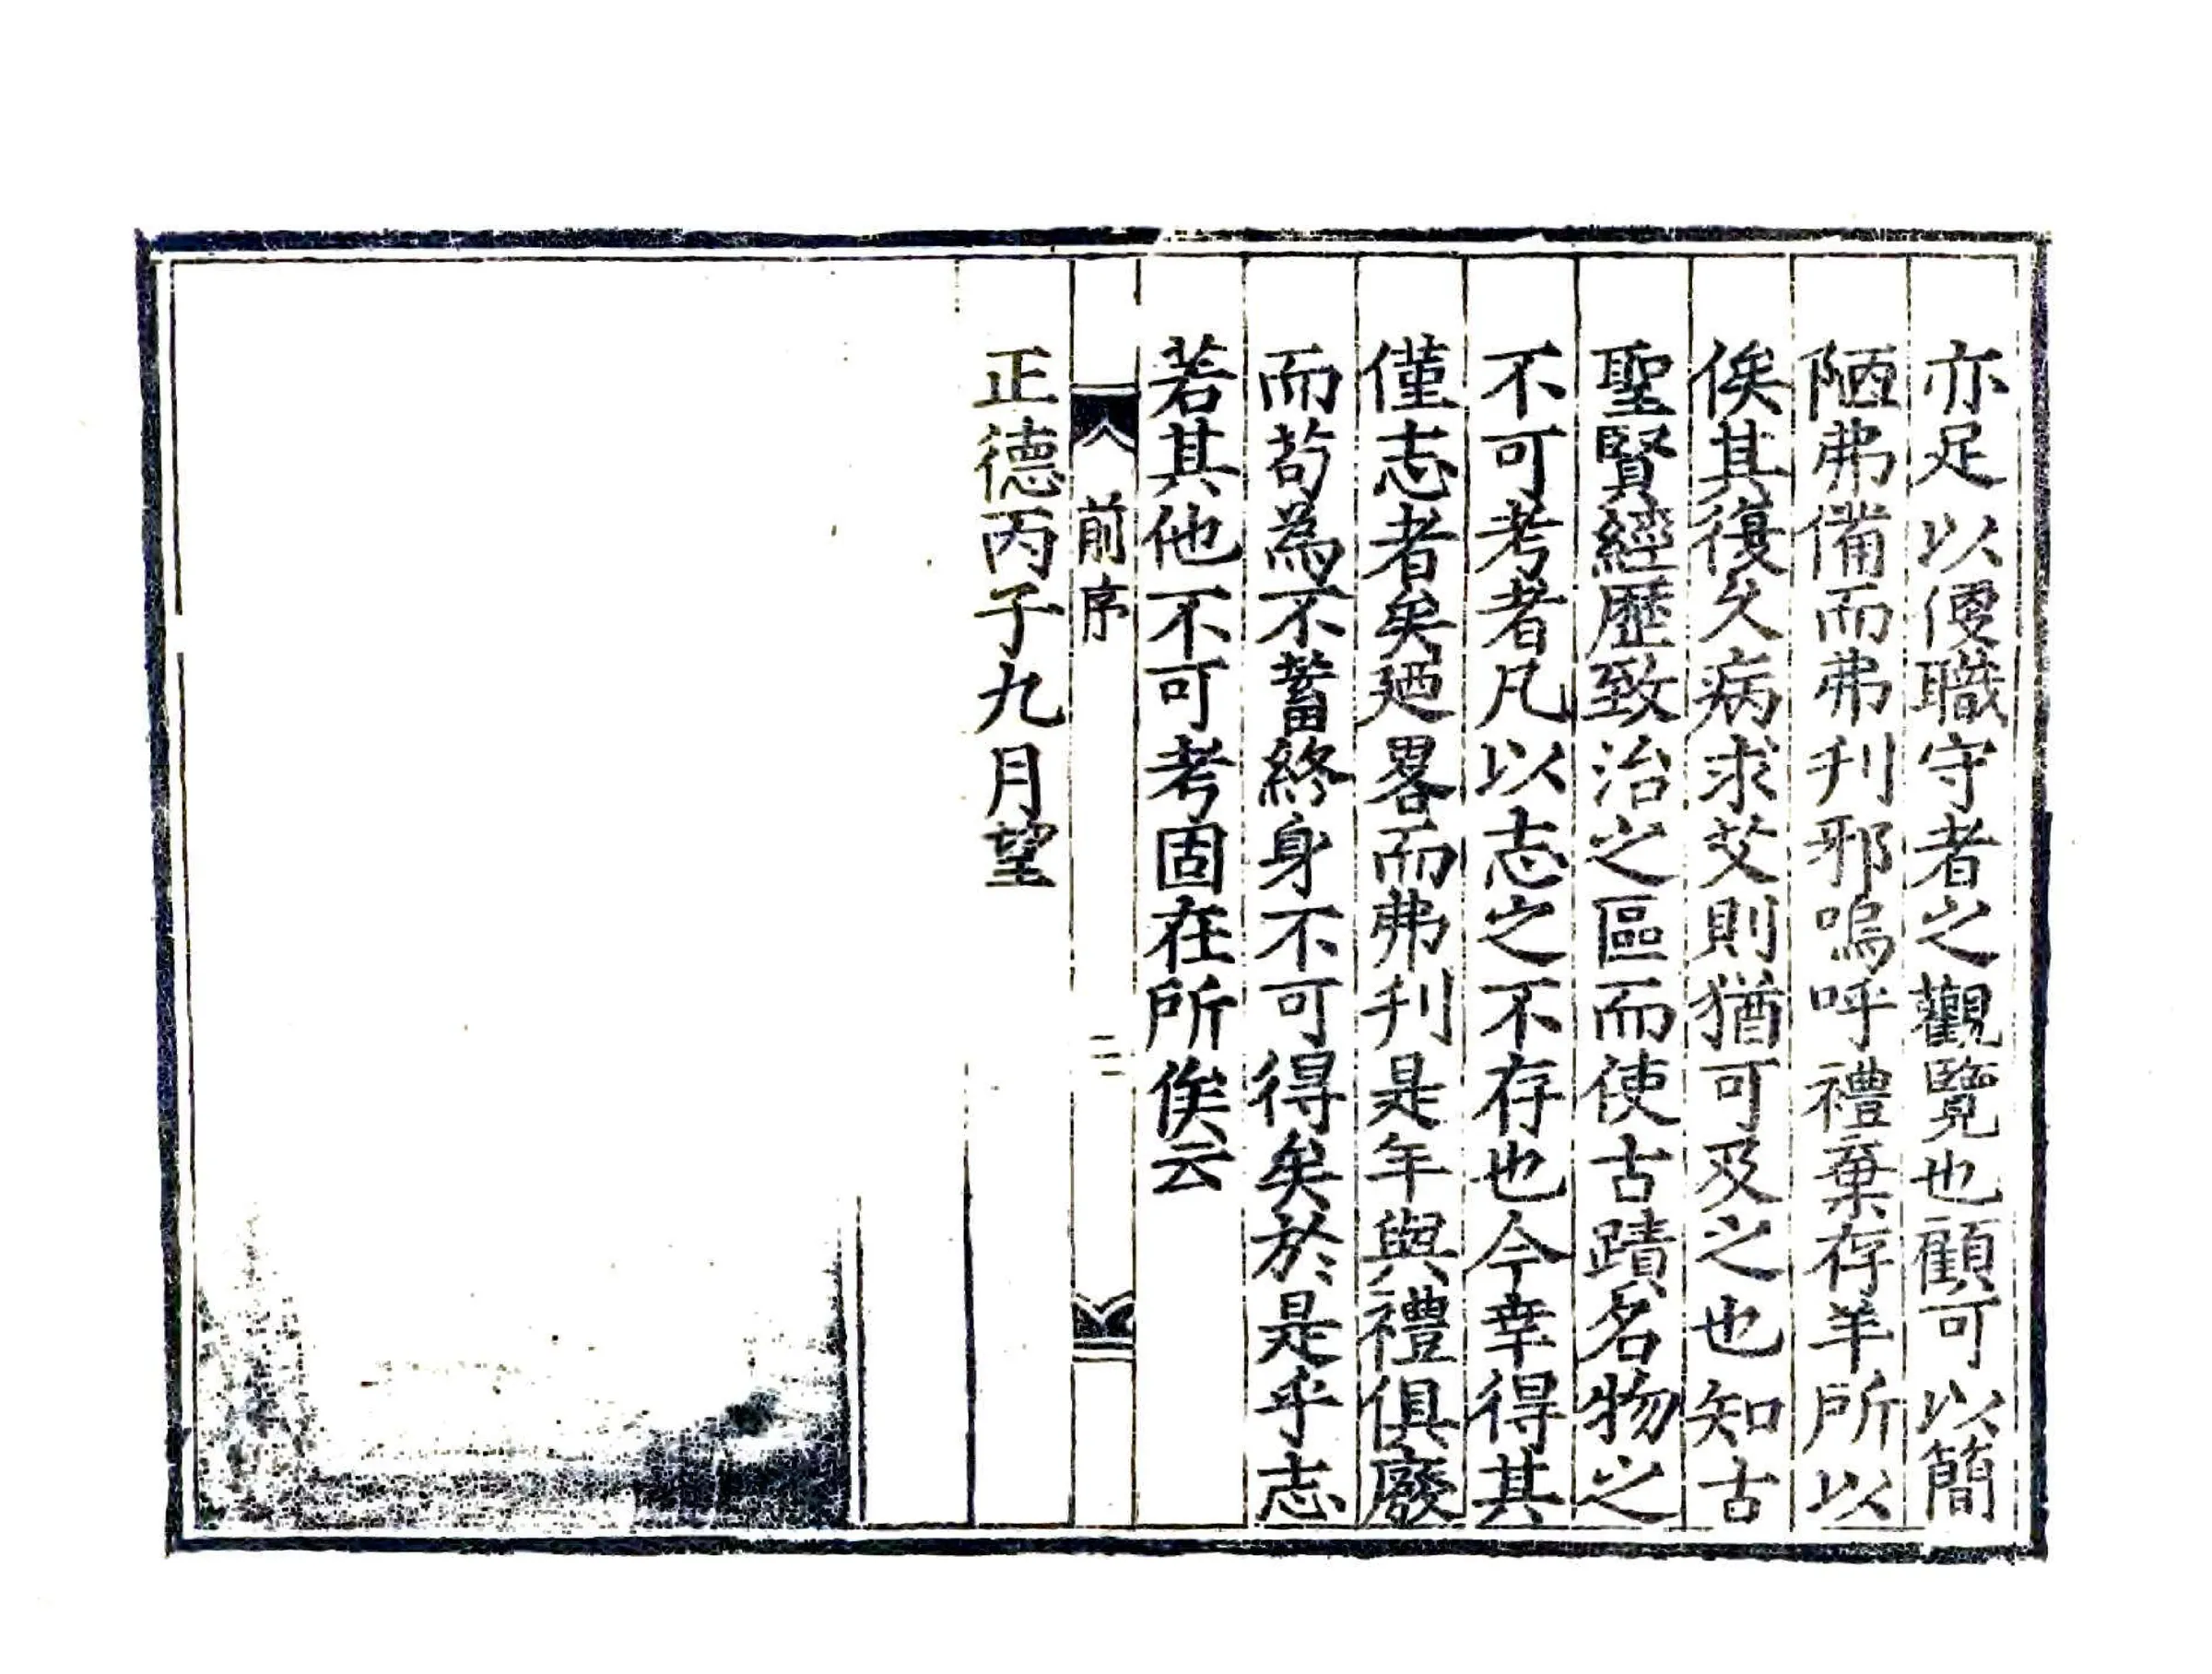 亦足以便職守者之觀覽也顧可以簡
陋弗備而弗刋邪嗚呼禮棄存羊所以
俟其復久病求艾則猶可及之也知古
聖賢經歷致治之區而使古蹟名物之
不可考者凡以志之不存也今幸得其
僅志者矣廼畧而弗刋是年與禮俱廢
而茍為不蓄終身不可得矣於是乎志
若其他不可考固在所俟云
前序
二
正德丙子九月望